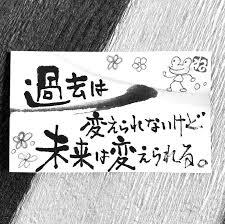 過去は
変えられないけど
未来は変えられる。